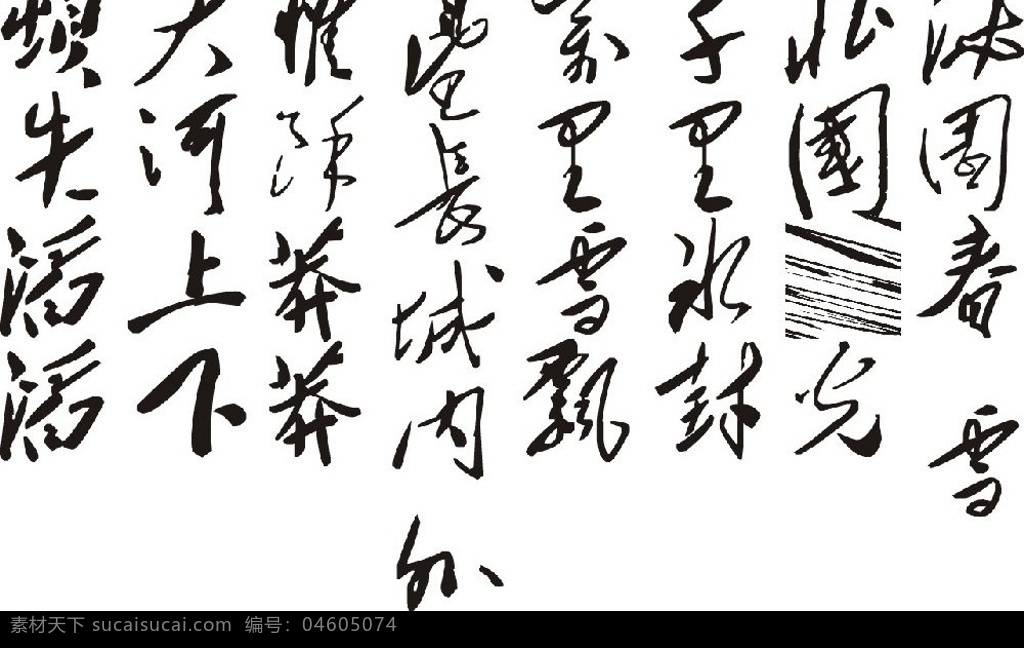 沁園春 雪
北國光
千里冰封
萬里雪飄
望長城内外
惟餘莽莽
大河上下
頓失滔滔
素材天下 sucaisucai.com 编号：04605074